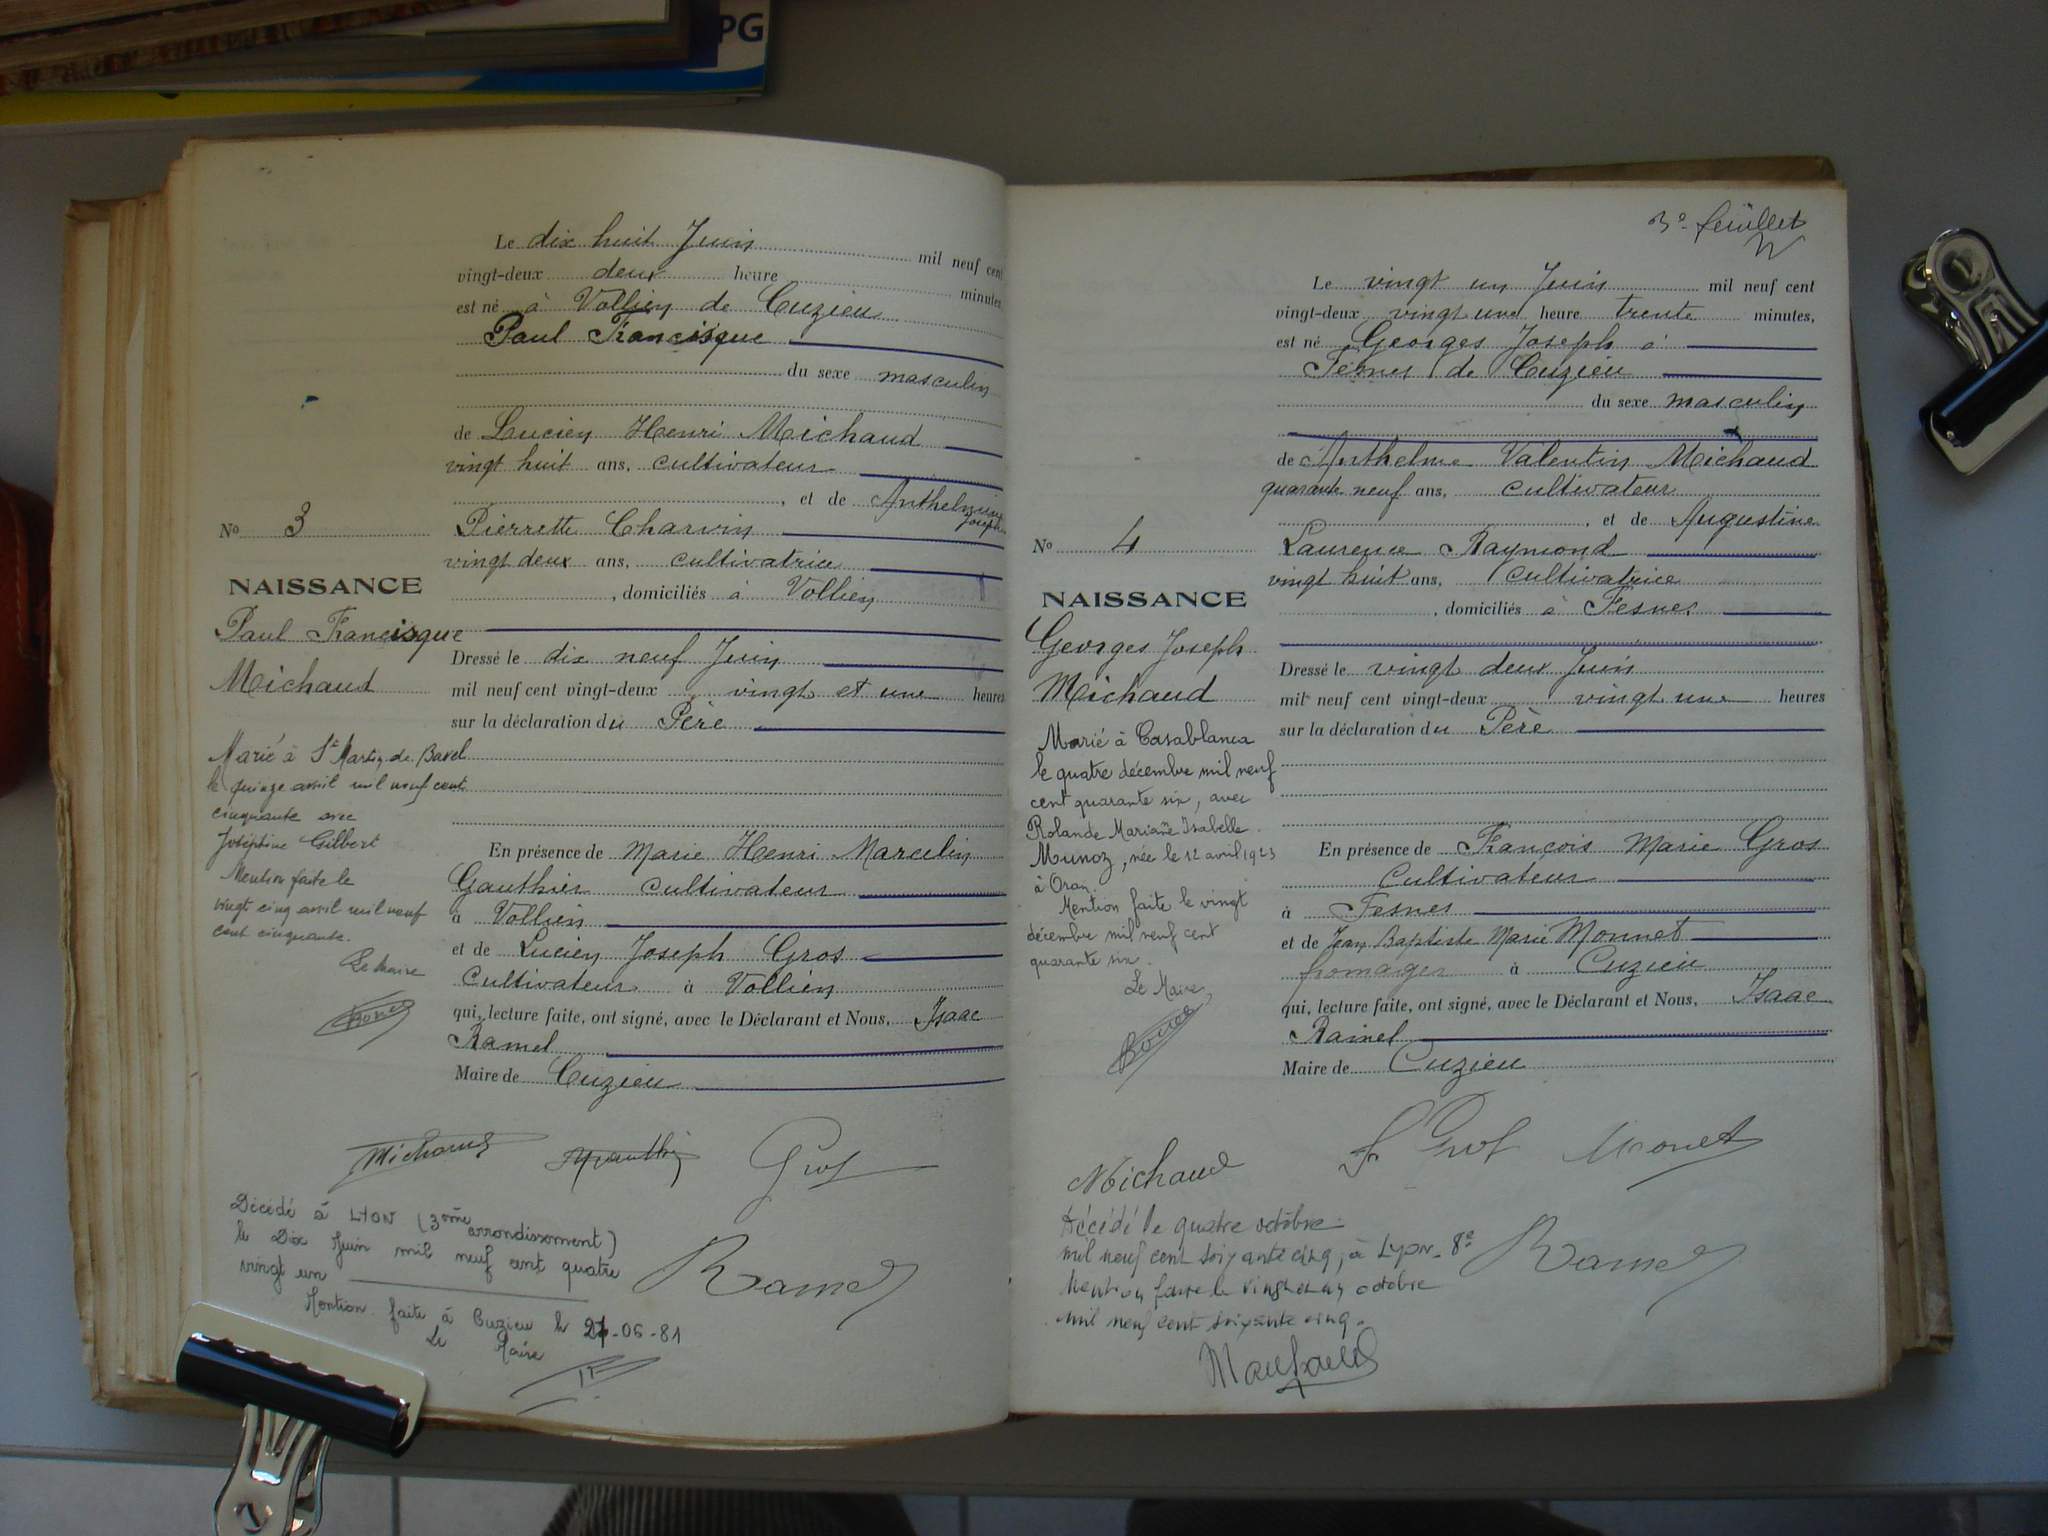 PG
Le dix huit Juin mil neuf cent
vingt-deux deux heure minutes
est né à Vollien de Cuzieu
Paul Francisque
du sexe masculin
de Lucien Henri Michaud
vingt huit ans, cultivateur
, et de Anthelmine
Joseph
No 3
Pierrette Charvin
vingt deux ans, cultivatrice
, domiciliés à Vollien
NAISSANCE
Paul Francisque
Michaud
Dressé le dix neuf Juin
mil neuf cent vingt-deux vingt et une heures
sur la déclaration du Père
Marié à St Martin de Bavel
le quinze avril mil neuf cent
cinquante avec
Joséphine Gilbert
Mention faite le
vingt cinq avril mil neuf
cent cinquante.
Le Maire
En présence de Marie Henri Marcelin
Gauthier cultivateur
à Vollien
et de Lucien Joseph Gros
Cultivateur à Vollien
qui, lecture faite, ont signé, avec le Déclarant et Nous, Isaac
Ramel
Maire de Cuzieu
Michaud Gauthier Gros
Décédé à LYON (3ème arrondissement)
le Dix Juin mil neuf cent quatre
vingt un
Ramel
Mention faite à Cuzieu le -06-81
Le Maire
3e feuillet
Le vingt un Juin mil neuf cent
vingt-deux vingt une heure trente minutes,
est né Georges Joseph à
Fesnes de Cuzieu
du sexe masculin
de Anthelme Valentin Michaud
quarante neuf ans, cultivateur
, et de Augustine
No 4
Laurence Raymond
vingt huit ans, cultivatrice
, domiciliés à Fesnes
NAISSANCE
Georges Joseph
Michaud
Dressé le vingt deux Juin
mil neuf cent vingt-deux vingt une heures
sur la déclaration du Père
Marié à Casablanca
le quatre décembre mil neuf
cent quarante six, avec
Rolande Mariane Isabelle
Munoz, née le 12 avril 1923
à Oran.
Mention faite le vingt
décembre mil neuf cent
quarante six.
Le Maire,
En présence de François Marie Gros
Cultivateur
à Fesnes
et de Jean Baptiste Marie Monnet
fromager à Cuzieu
qui, lecture faite, ont signé, avec le Déclarant et Nous, Isaac
Ramel
Maire de Cuzieu
Michaud F. Gros Monet
Décédé le quatre octobre
mil neuf cent soixante cinq, à Lyon-8e
Ramel
Mention faite le vingt et un octobre
mil neuf cent soixante cinq.